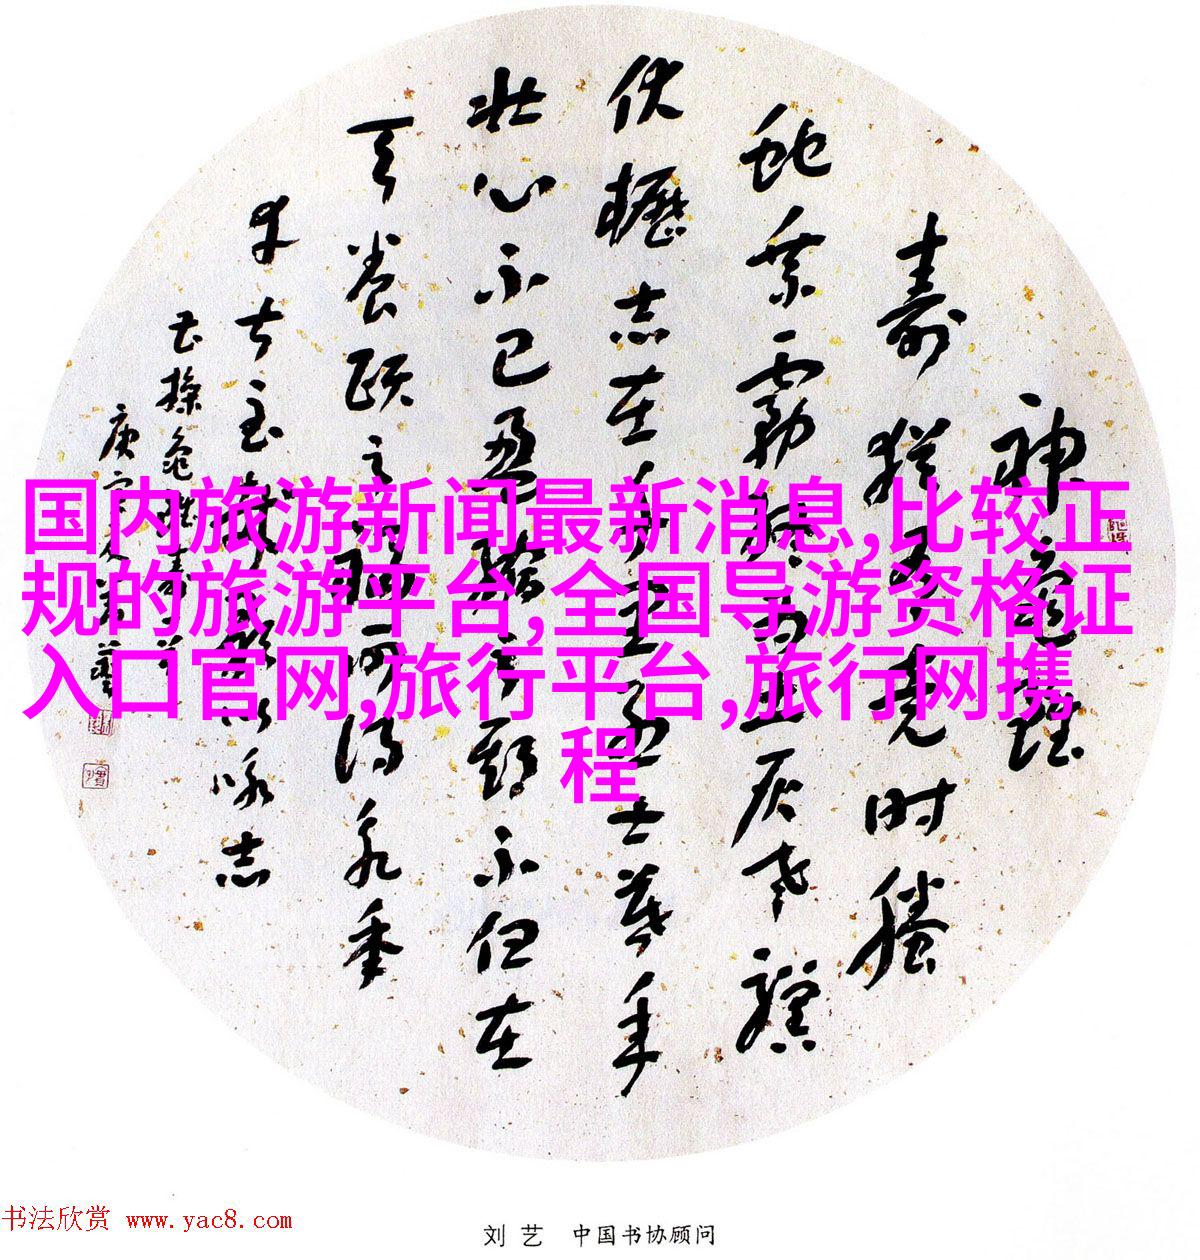 神龜雖
壽猶有竟时騰
蛇乘霧終为土灰老驥
伏櫪志在千里烈士暮年
壯心不已盈縮之期不但在
天養頤之福可得永年
幸甚至哉歌以咏志
操龜雖壽
庚寅冬劉藝
国内旅游新闻最新消息,比较正
规的旅游平台,全国导游资格证
入口官网,旅行平台,旅行网携
程
书法欣赏 www.yac8.com
刘艺 中国书协顾问